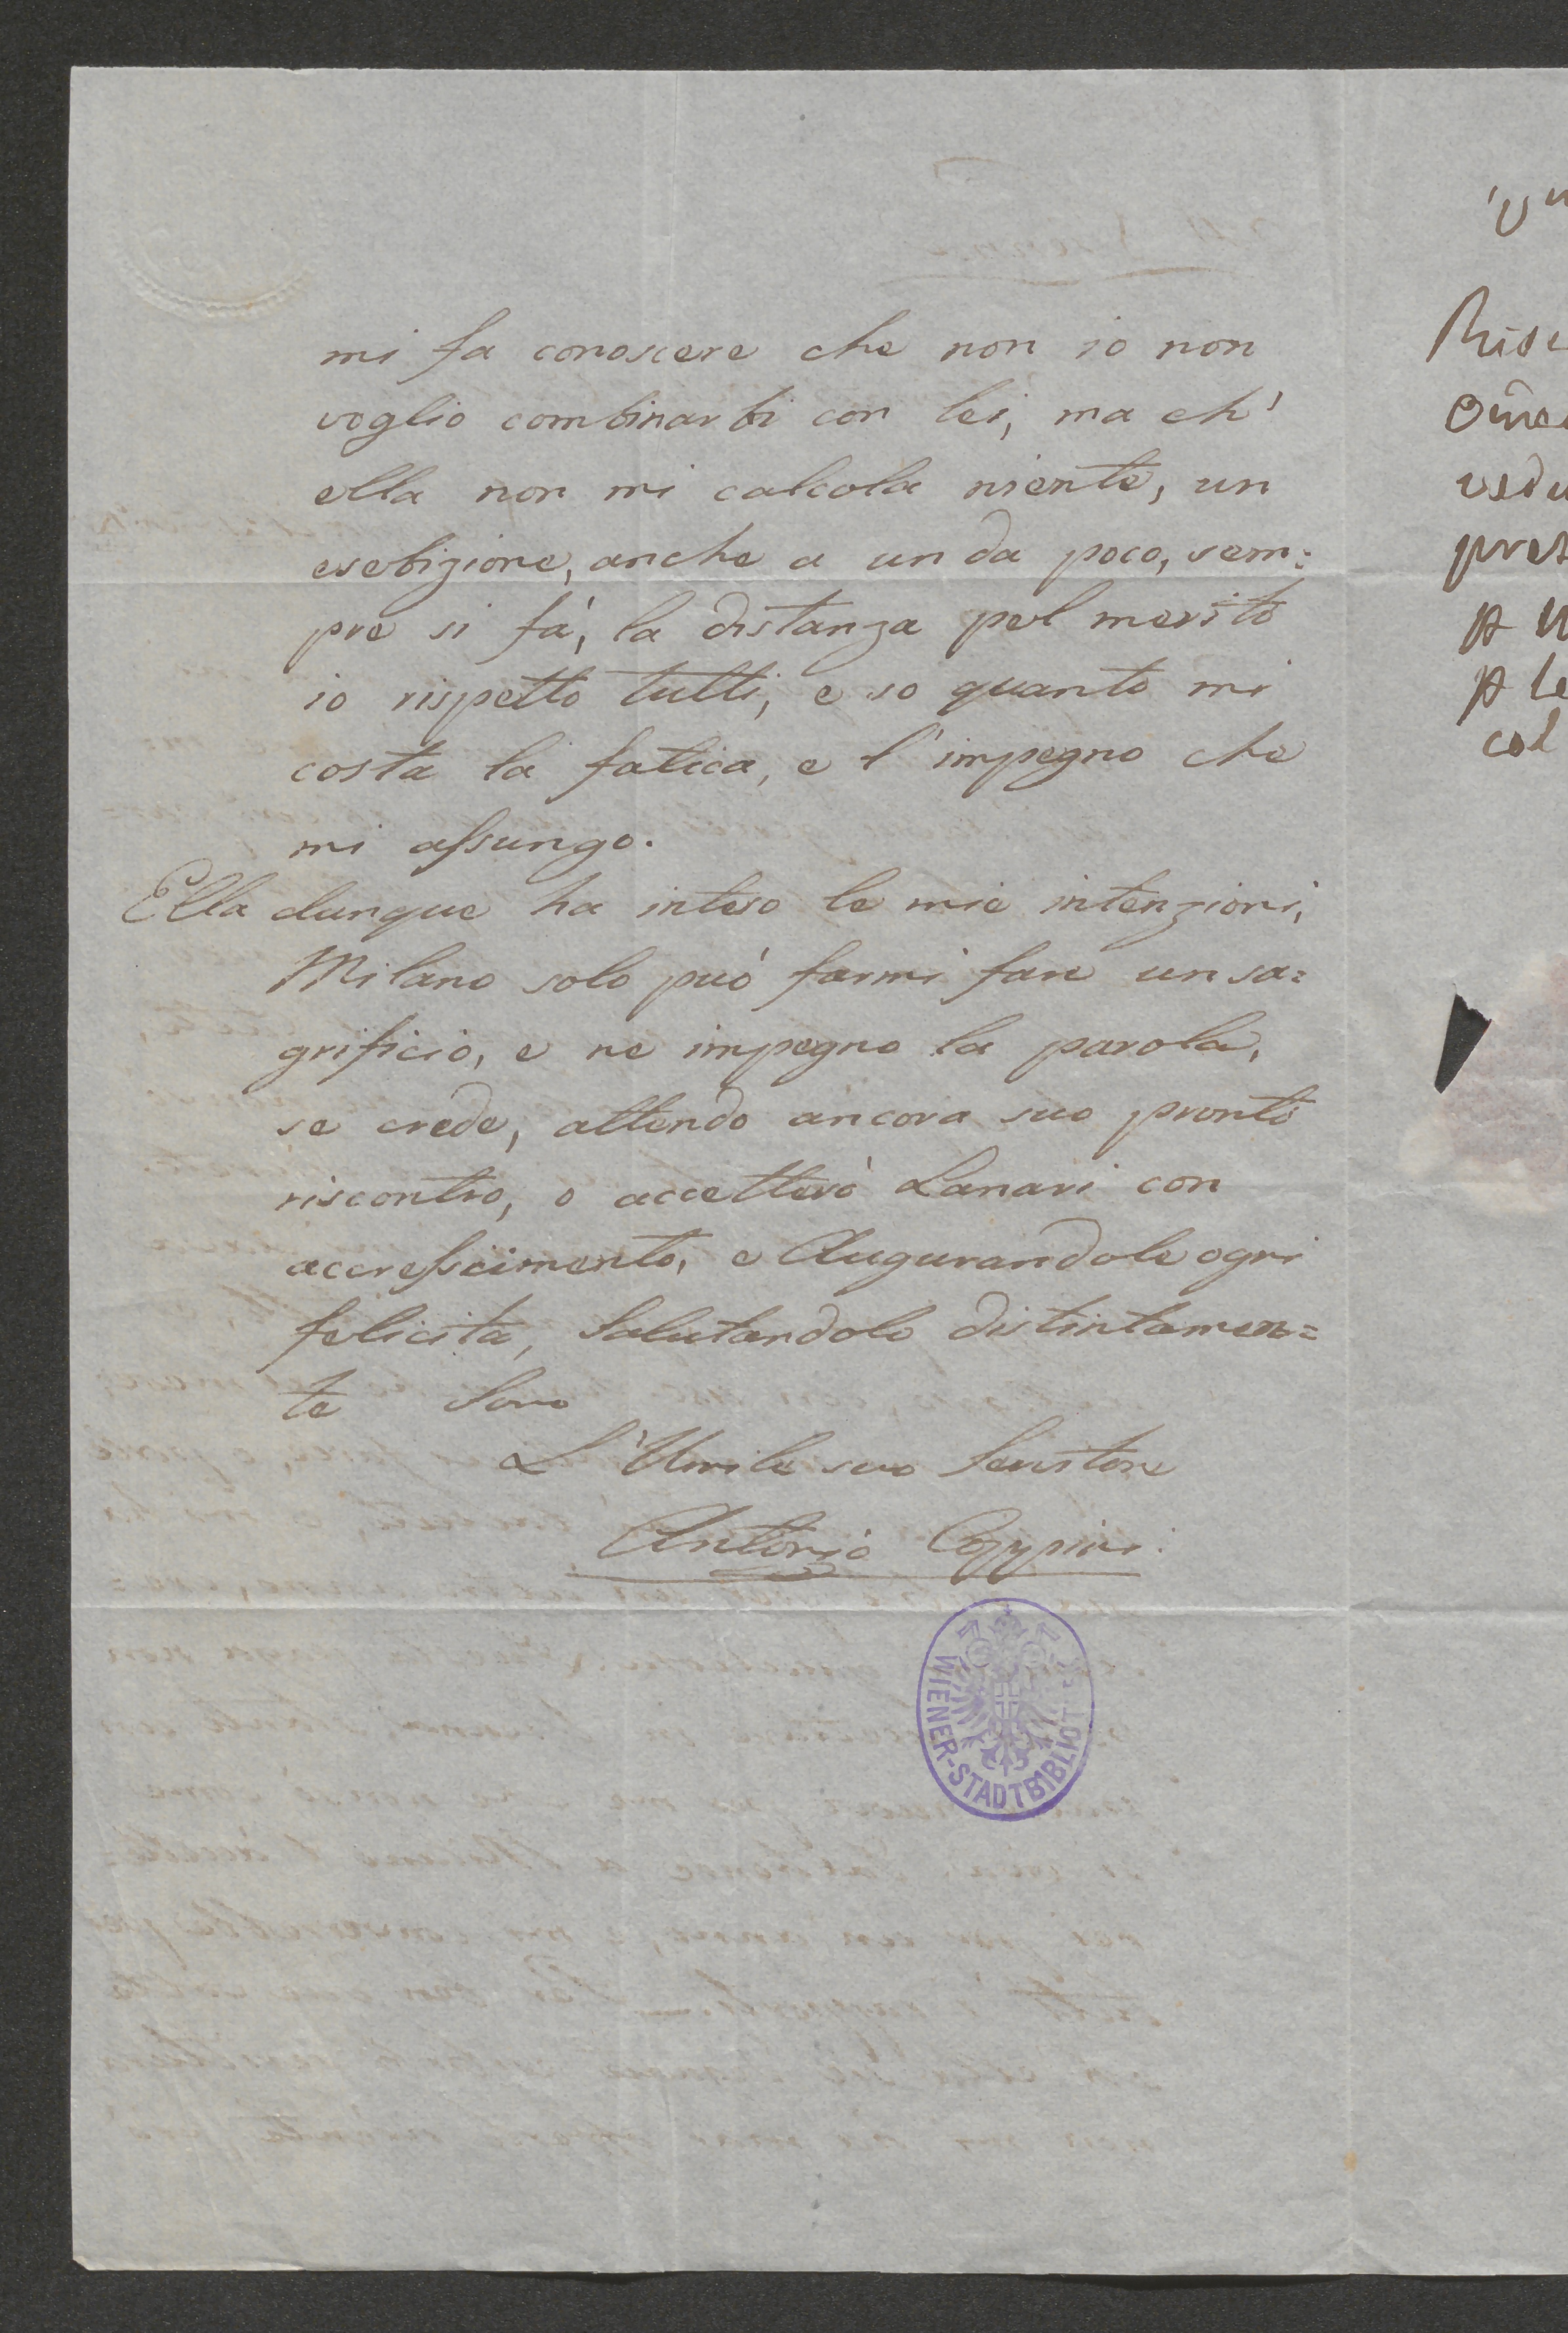 mi fa conoscere che non io non
voglio combinarbi con lei, ma ch'
ella non mi calcola niente, un
esebizione, anche a un da poco, sem=
pre si fà, la distanza pel merito
io rispetto tutti, e so quanto mi
costa la fatica, e l'impegno che
mi assungo.
Ella dunque ha inteso le mie intenzioni,
Milano solo può farmi fare un sa=
grificio, e ne impegno la parola,
se crede, attendo ancora suo pronto
riscontro, o accetterò Lanari con
accresscimento, e Augurandole ogni
felicità, Salutandolo distintamen=
te Sono
L'Umile suo Servitore
Antonio Coppini
WIENER-STADTBIBLIOT